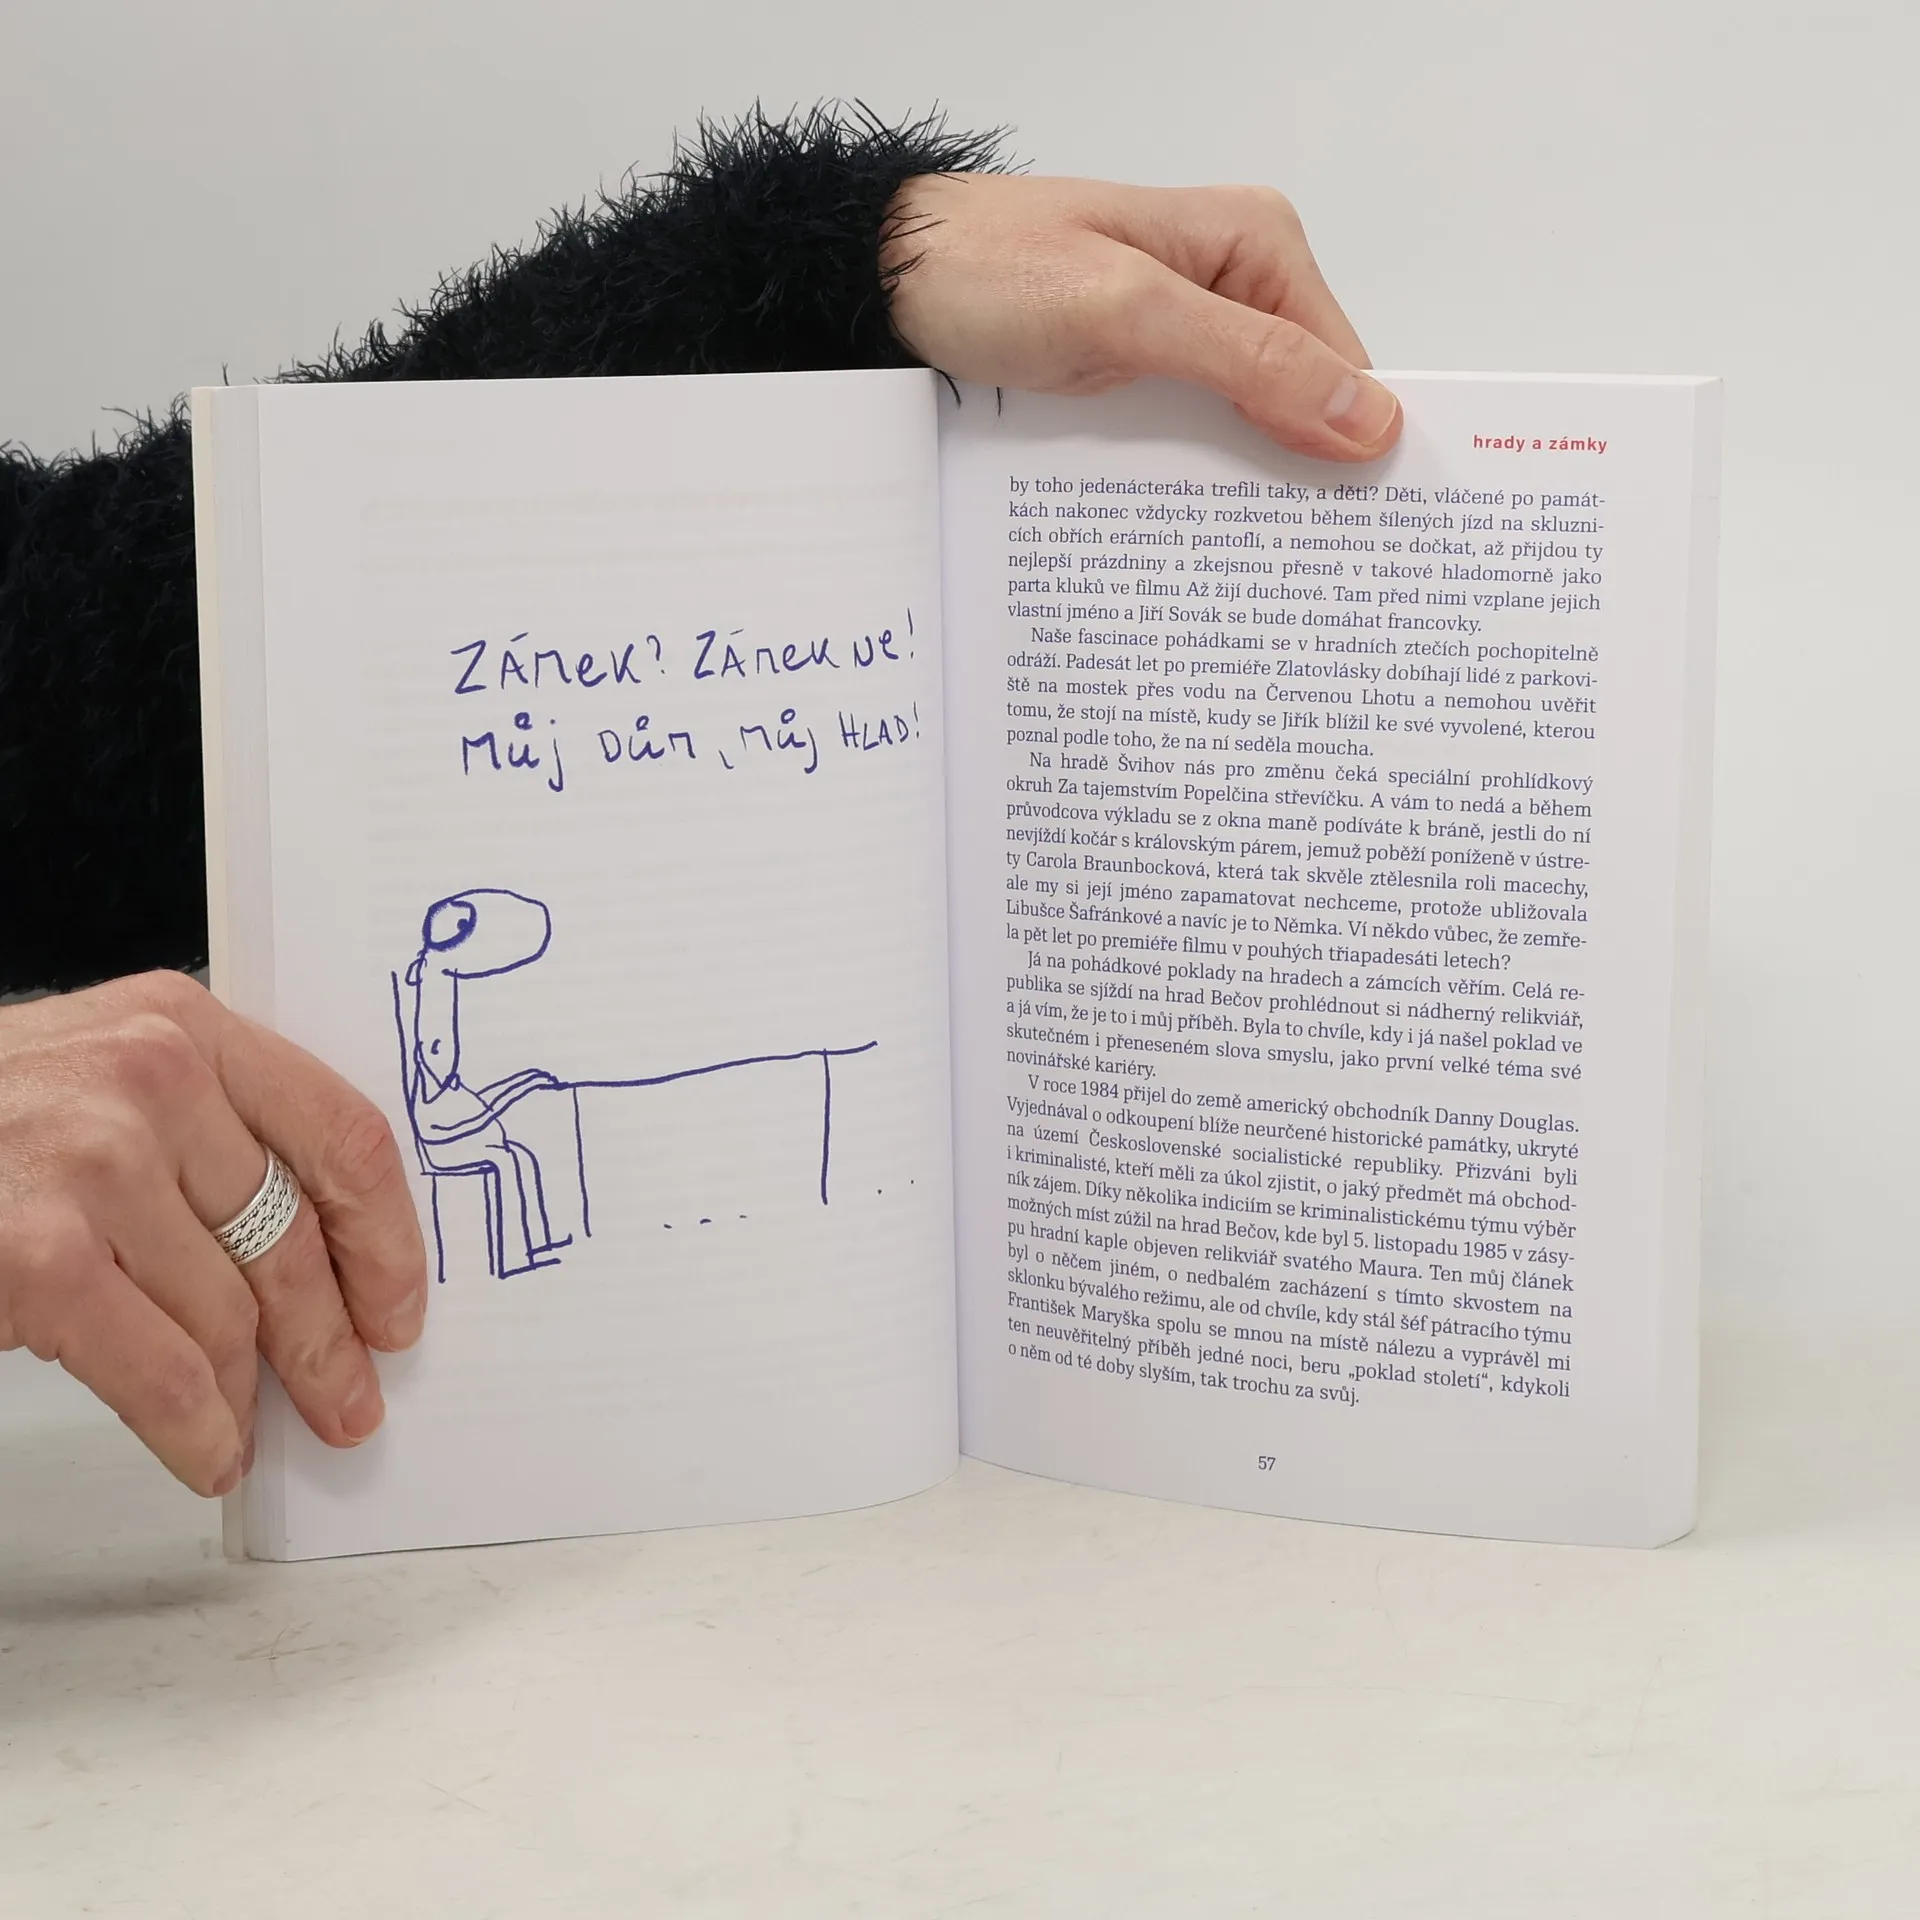 ZÁMEK? ZÁMEK NE!
MŮJ DŮM, MŮJ HLAD!
hrady a zámky
by toho jedenácteráka trefili taky, a děti? Děti, vláčené po památ-
kách nakonec vždycky rozkvetou během šílených jízd na skluzni-
cích obřích erárních pantoflí, a nemohou se dočkat, až přijdou ty
nejlepší prázdniny a zkejsnou přesně v takové hladomorně jako
parta kluků ve filmu Až žijí duchové. Tam před nimi vzplane jejich
vlastní jméno a Jiří Sovák se bude domáhat francovky.
Naše fascinace pohádkami se v hradních ztečích pochopitelně
odráží. Padesát let po premiéře Zlatovlásky dobíhají lidé z parkovi-
ště na mostek přes vodu na Červenou Lhotu a nemohou uvěřit
tomu, že stojí na místě, kudy se Jiřík blížil ke své vyvolené, kterou
poznal podle toho, že na ní seděla moucha.
Na hradě Švihov nás pro změnu čeká speciální prohlídkový
okruh Za tajemstvím Popelčina střevíčku. A vám to nedá a během
průvodcova výkladu se z okna maně podíváte k bráně, jestli do ní
nevjíždí kočár s královským párem, jemuž poběží poníženě v ústre-
ty Carola Braunbocková, která tak skvěle ztělesnila roli macechy,
ale my si její jméno zapamatovat nechceme, protože ubližovala
Libušce Šafránkové a navíc je to Němka. Ví někdo vůbec, že zemře-
la pět let po premiéře filmu v pouhých třiapadesáti letech?
Já na pohádkové poklady na hradech a zámcích věřím. Celá re-
publika se sjíždí na hrad Bečov prohlédnout si nádherný relikviář,
a já vím, že je to i můj příběh. Byla to chvíle, kdy i já našel poklad ve
skutečném i přeneseném slova smyslu, jako první velké téma své
novinářské kariéry.
V roce 1984 přijel do země americký obchodník Danny Douglas.
Vyjednával o odkoupení blíže neurčené historické památky, ukryté
na území Československé socialistické republiky. Přizváni byli
i kriminalisté, kteří měli za úkol zjistit, o jaký předmět má obchod-
ník zájem. Díky několika indiciím se kriminalistickému týmu výběr
možných míst zúžil na hrad Bečov, kde byl 5. listopadu 1985 v zásy-
pu hradní kaple objeven relikviář svatého Maura. Ten můj článek
byl o něčem jiném, o nedbalém zacházení s tímto skvostem na
sklonku bývalého režimu, ale od chvíle, kdy stál šéf pátracího týmu
František Maryška spolu se mnou na místě nálezu a vyprávěl mi
ten neuvěřitelný příběh jedné noci, beru „poklad století“, kdykoli
o něm od té doby slyším, tak trochu za svůj.
57